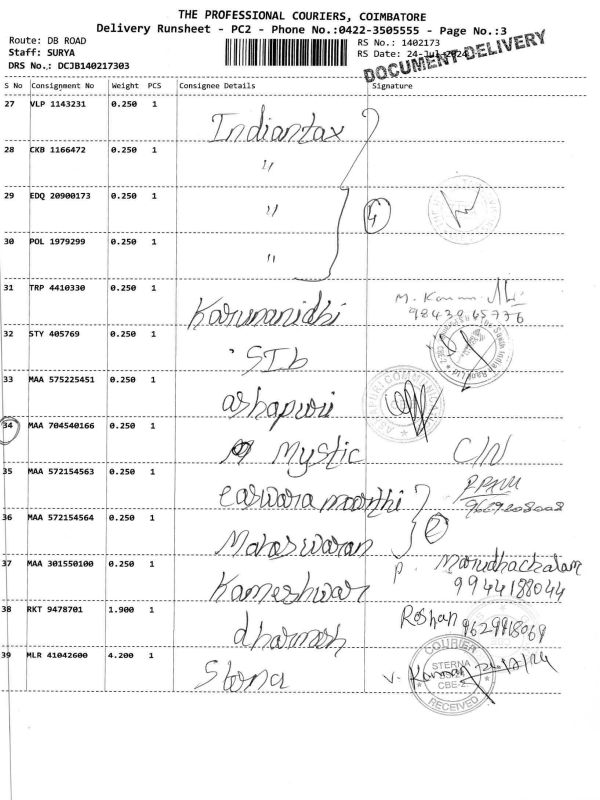 THE PROFESSIONAL COURIERS, COIMBATORE
Delivery Runsheet - PC2 - Phone No.:0422-3505555 - Page No.:3
Route: DB ROAD
Staff: SURYA
DRS No.: DCJB140217303
RS No.: 1402173
RS Date: 24-Jul-2024
DOCUMENT DELIVERY
S No Consignment No Weight PCS Consignee Details Signature
27 VLP 1143231 0.250 1 Indiantax
28 CKB 1166472 0.250 1 "
29 EDQ 20900173 0.250 1 " 4
30 POL 1979299 0.250 1 "
31 TRP 4410330 0.250 1 Karunanidhi
32 STY 405769 0.250 1 STb
33 MAA 575225451 0.250 1 ashapuri
34 MAA 704540166 0.250 1 Mystic C/N
35 MAA 572154563 0.250 1 easwara moorthi
9629208008
36 MAA 572154564 0.250 1 Mahaswaran 2
37 MAA 301550100 0.250 1 Kameshwar P. Marudhachalam
9944188044
38 RKT 9478701 1.900 1 dharmesh Roshan 9629918069
39 MLR 41042600 4.200 1 Stona V. Kannan 24/7/24
COURIER
STERNA
CBE-2
RECEIVED